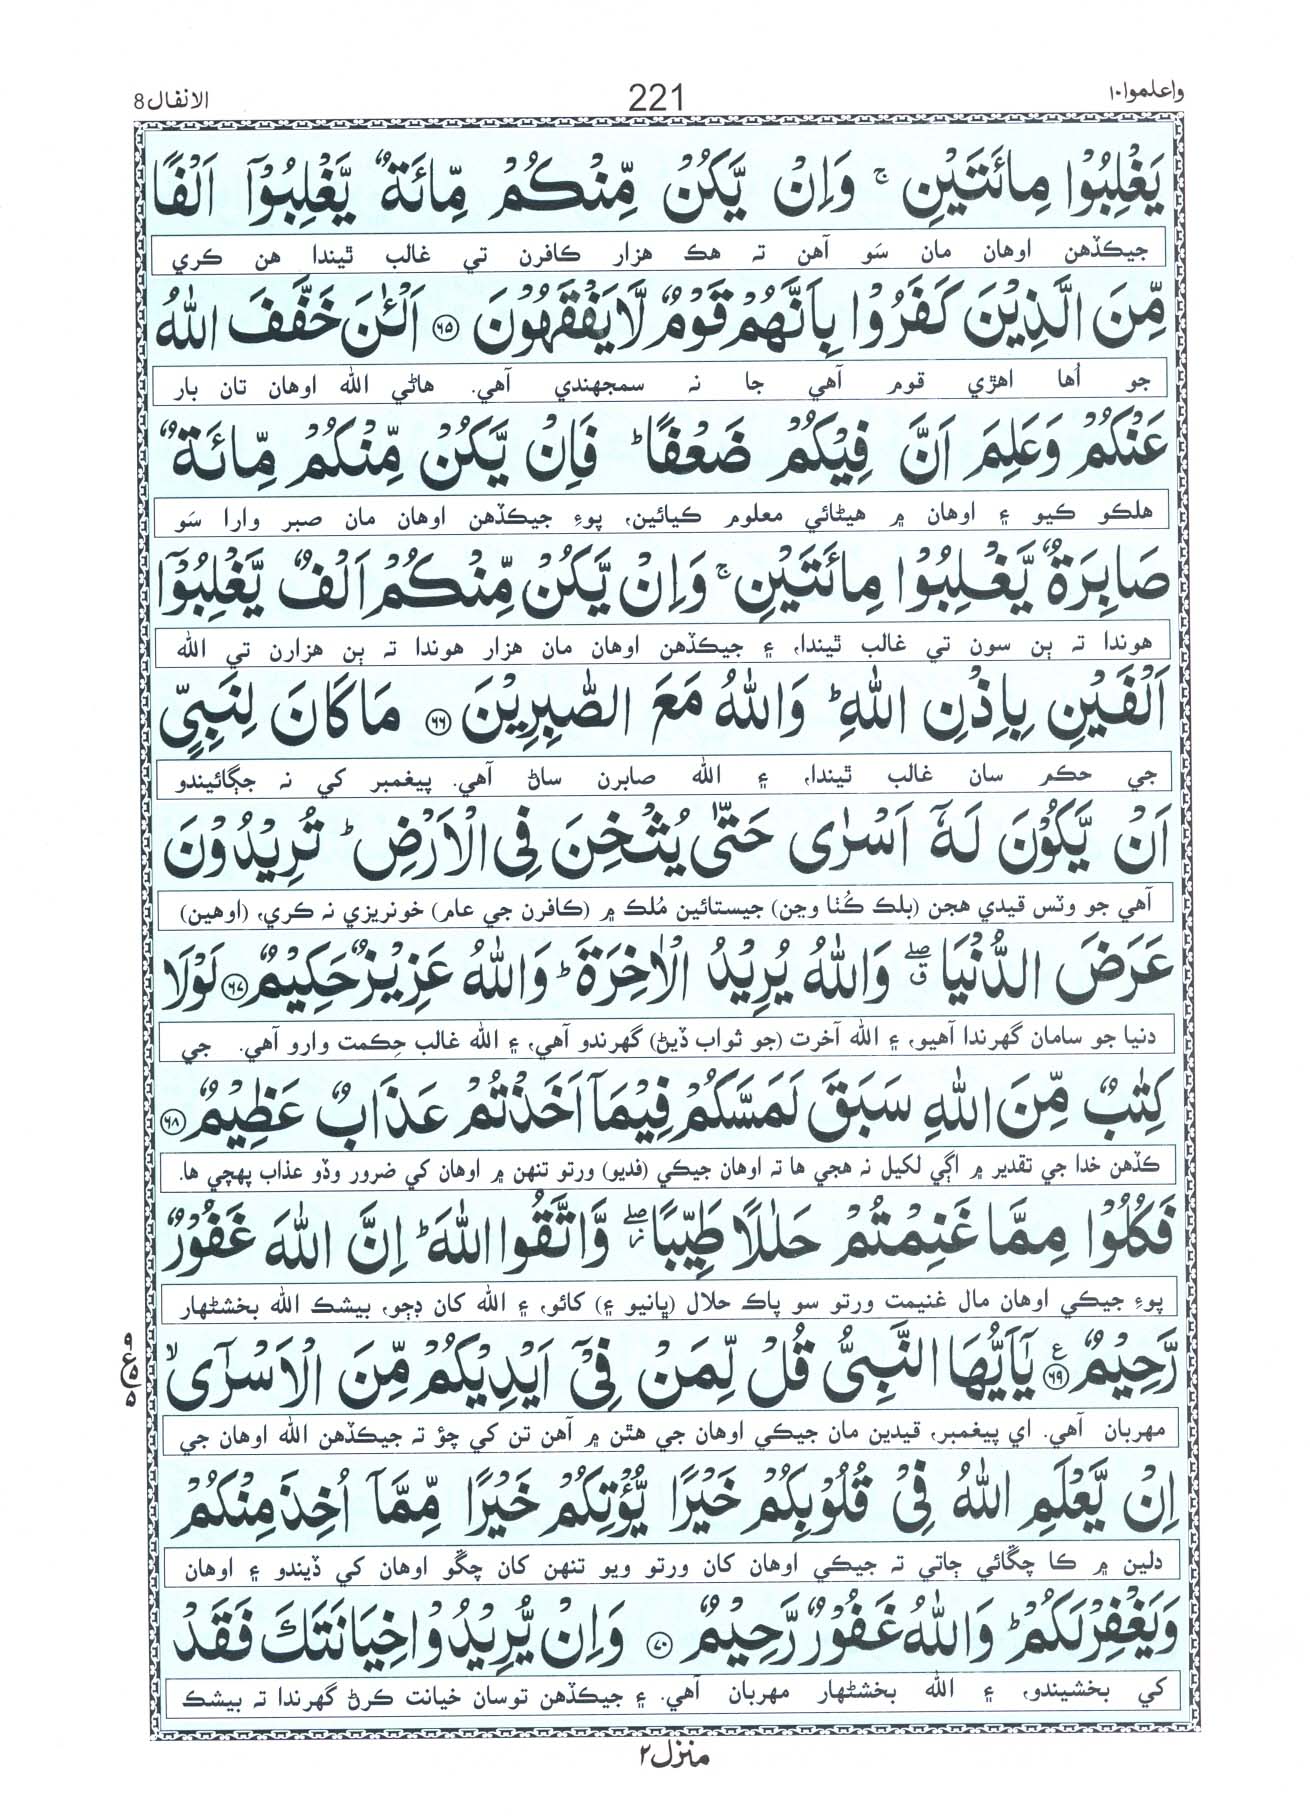 واعلموا۱۰
221
الانفال8
يَغْلِبُوْا مِائَتَيْنِ ۚ وَاِنْ يَّكُنْ مِّنْكُمْ مِّائَةٌ يَّغْلِبُوْۤا اَلْفًا
جيڪڏهن اوهان مان سَو آهن تہ هڪ هزار ڪافرن تي غالب ٿيندا هن ڪري
مِّنَ الَّذِيْنَ كَفَرُوْا بِاَنَّهُمْ قَوْمٌ لَّا يَفْقَهُوْنَ ۶۵ اَلْـٰٔنَ خَفَّفَ اللّٰهُ
جو اُها اهڙي قوم آهي جا نہ سمجهندي آهي. هاڻي الله اوهان تان بار
عَنْكُمْ وَعَلِمَ اَنَّ فِيْكُمْ ضَعْفًا ؕ فَاِنْ يَّكُنْ مِّنْكُمْ مِّائَةٌ
هلڪو ڪيو ۽ اوهان ۾ هيڻائي معلوم ڪيائين، پوءِ جيڪڏهن اوهان مان صبر وارا سَو
صَابِرَةٌ يَّغْلِبُوْا مِائَتَيْنِ ۚ وَاِنْ يَّكُنْ مِّنْكُمْ اَلْفٌ يَّغْلِبُوْۤا
هوندا تہ ٻن سون تي غالب ٿيندا، ۽ جيڪڏهن اوهان مان هزار هوندا تہ ٻن هزارن تي الله
اَلْفَيْنِ بِاِذْنِ اللّٰهِ ؕ وَاللّٰهُ مَعَ الصّٰبِرِيْنَ ۶۶ مَا كَانَ لِنَبِيٍّ
جي حڪم سان غالب ٿيندا، ۽ الله صابرن ساڻ آهي. پيغمبر کي نہ جڳائيندو
اَنْ يَّكُوْنَ لَهٗۤ اَسْرٰى حَتّٰى يُثْخِنَ فِي الْاَرْضِ ؕ تُرِيْدُوْنَ
آهي جو وٽس قيدي هجن (بلڪ ڪُٺا وڃن) جيستائين مُلڪ ۾ (ڪافرن جي عام) خونريزي نہ ڪري، (اوهين)
عَرَضَ الدُّنْيَا ۖق وَاللّٰهُ يُرِيْدُ الْاٰخِرَةَ ؕ وَاللّٰهُ عَزِيْزٌ حَكِيْمٌ ۶۷ لَوْلَا
دنيا جو سامان گهرندا آهيو، ۽ الله آخرت (جو ثواب ڏيڻ) گهرندو آهي، ۽ الله غالب حِڪمت وارو آهي. جي
كِتٰبٌ مِّنَ اللّٰهِ سَبَقَ لَمَسَّكُمْ فِيْمَاۤ اَخَذْتُمْ عَذَابٌ عَظِيْمٌ ۶۸
ڪڏهن خدا جي تقدير ۾ اڳي لکيل نہ هجي ها تہ اوهان جيڪي (فديو) ورتو تنهن ۾ اوهان کي ضرور وڏو عذاب پهچي ها.
فَكُلُوْا مِمَّا غَنِمْتُمْ حَلٰلًا طَيِّبًا ۖز وَّاتَّقُوا اللّٰهَ ؕ اِنَّ اللّٰهَ غَفُوْرٌ
پوءِ جيڪي اوهان مال غنيمت ورتو سو پاڪ حلال (ڀانيو ۽) کائو، ۽ الله کان ڊڄو، بيشڪ الله بخشڻهار
رَّحِيْمٌ ۶۹ ع يٰۤاَيُّهَا النَّبِيُّ قُلْ لِّمَنْ فِيْۤ اَيْدِيْكُمْ مِّنَ الْاَسْرٰۤى ۙ
۹ ع۵ ۵
مهربان آهي. اي پيغمبر، قيدين مان جيڪي اوهان جي هٿن ۾ آهن تن کي چؤ تہ جيڪڏهن الله اوهان جي
اِنْ يَّعْلَمِ اللّٰهُ فِيْ قُلُوْبِكُمْ خَيْرًا يُّؤْتِكُمْ خَيْرًا مِّمَّاۤ اُخِذَ مِنْكُمْ
دلين ۾ ڪا چڱائي ڄاتي تہ جيڪي اوهان کان ورتو ويو تنهن کان چڱو اوهان کي ڏيندو ۽ اوهان
وَيَغْفِرْ لَكُمْ ؕ وَاللّٰهُ غَفُوْرٌ رَّحِيْمٌ ۷۰ وَاِنْ يُّرِيْدُوْا خِيَانَتَكَ فَقَدْ
کي بخشيندو، ۽ الله بخشڻهار مهربان آهي. ۽ جيڪڏهن توسان خيانت ڪرڻ گهرندا تہ بيشڪ
منزل۲